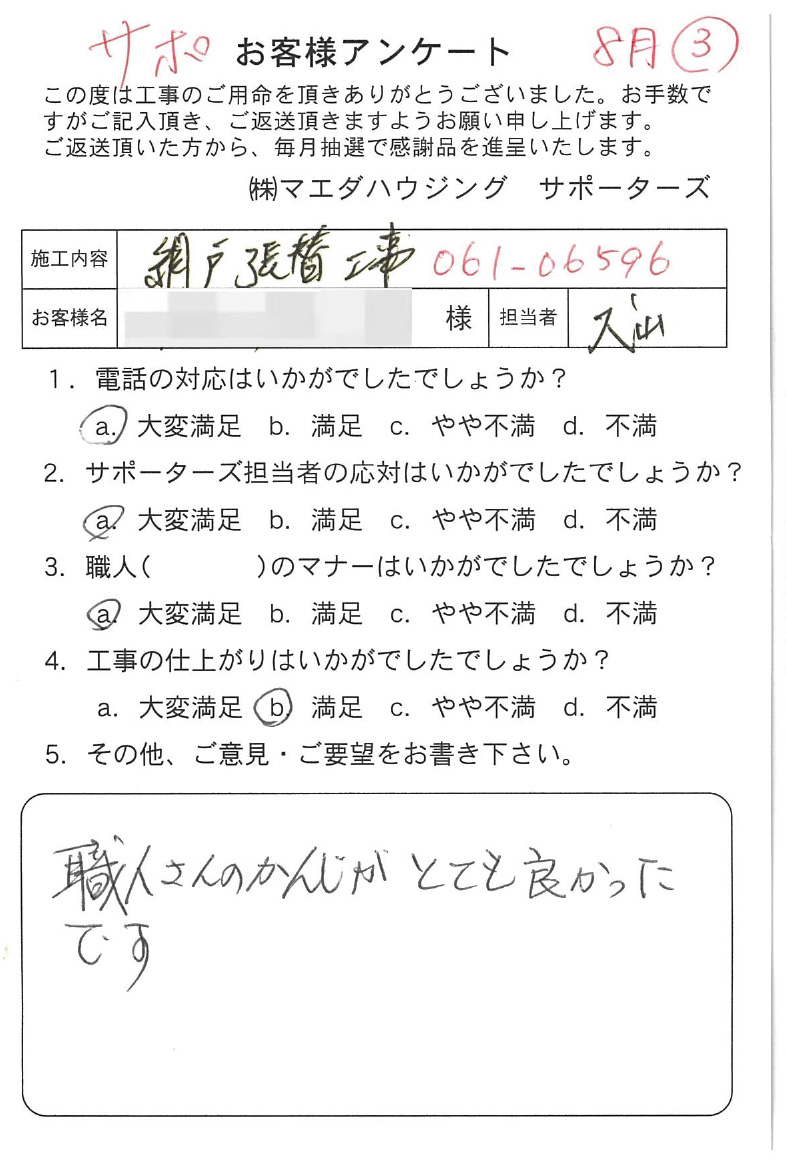 サポ お客様アンケート 8月③
この度は工事のご用命を頂きありがとうございました。お手数で
すがご記入頂き、ご返送頂きますようお願い申し上げます。
ご返送頂いた方から、毎月抽選で感謝品を進呈いたします。
㈱マエダハウジング サポーターズ
施工内容 網戸張替工事 061-06596
お客様名 様 担当者
1. 電話の対応はいかがでしたでしょうか？
a. 大変満足 b. 満足 c. やや不満 d. 不満
2. サポーターズ担当者の応対はいかがでしたでしょうか？
a. 大変満足 b. 満足 c. やや不満 d. 不満
3. 職人( )のマナーはいかがでしたでしょうか？
a. 大変満足 b. 満足 c. やや不満 d. 不満
4. 工事の仕上がりはいかがでしたでしょうか？
a. 大変満足 b. 満足 c. やや不満 d. 不満
5. その他、ご意見・ご要望をお書き下さい。
職人さんのかんじがとても良かった
です